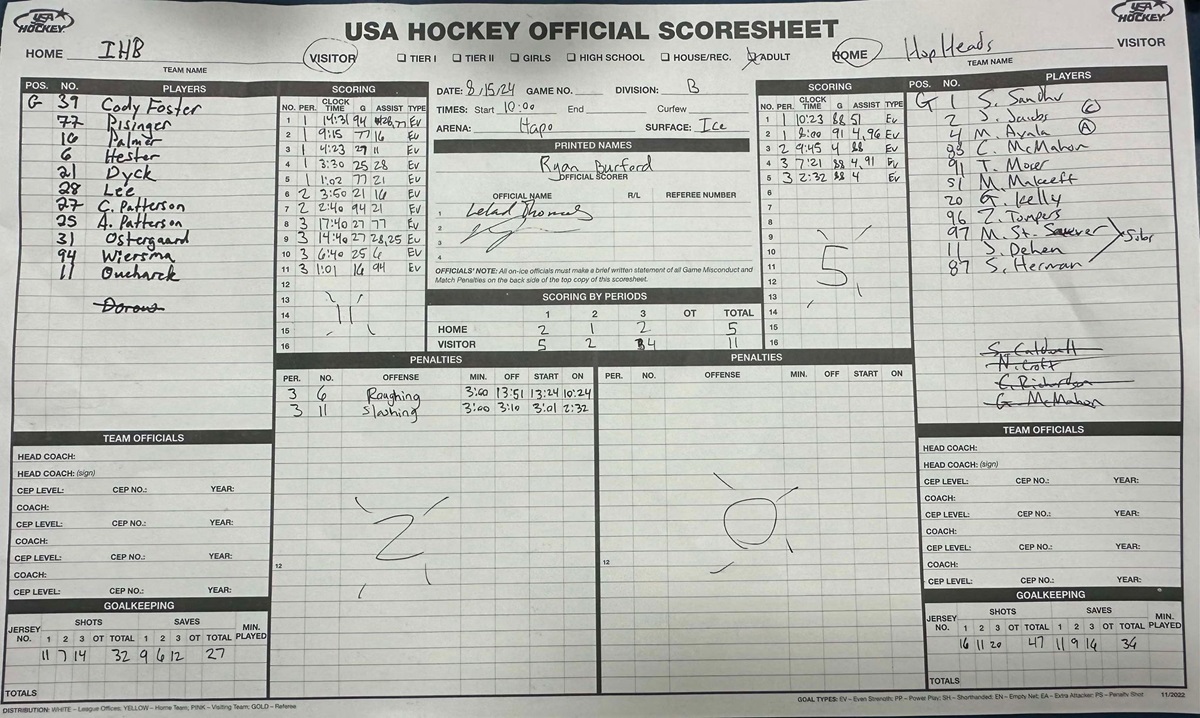 USA HOCKEY
USA HOCKEY OFFICIAL SCORESHEET
USA HOCKEY
HOME IHB VISITOR TIER I TIER II GIRLS HIGH SCHOOL HOUSE/REC. ADULT HOME HopHeads VISITOR
TEAM NAME TEAM NAME
POS. NO. PLAYERS
G 39 Cody Foster
77 Risinger
16 Palmer
6 Hester
21 Dyck
28 Lee
27 C. Patterson
25 A. Patterson
31 Ostergaard
94 Wiersma
11 Oucharek
Dorows
SCORING
NO. PER. CLOCK TIME G ASSIST TYPE
1 1 14:31 94 28,77 Ev
2 1 9:15 77 16 Ev
3 1 4:23 27 11 Ev
4 1 3:30 25 28 Ev
5 1 1:02 77 21 Ev
6 2 3:50 21 16 Ev
7 2 2:40 94 21 Ev
8 3 17:40 27 77 Ev
9 3 14:40 27 28,25 Ev
10 3 6:40 25 6 Ev
11 3 1:01 16 94 Ev
12
13
14
15
16
11
DATE: 8/15/24 GAME NO. DIVISION: B
TIMES: Start 10:00 End Curfew
ARENA: Hapo SURFACE: Ice
PRINTED NAMES
Ryan Burford
OFFICIAL SCORER
OFFICIAL NAME R/L REFEREE NUMBER
1
2
3
4
OFFICIALS' NOTE: All on-ice officials must make a brief written statement of all Game Misconduct and
Match Penalties on the back side of the top copy of this scoresheet.
SCORING BY PERIODS
1 2 3 OT TOTAL
HOME 2 1 2 5
VISITOR 5 2 4 11
SCORING
NO. PER. CLOCK TIME G ASSIST TYPE
1 1 10:23 88 51 Ev
2 1 8:00 91 4,96 Ev
3 2 9:45 4 88 Ev
4 3 7:21 88 4,91 Ev
5 3 2:32 88 4 Ev
6
7
8
9
10
11
12
13
14
15
16
5
POS. NO. PLAYERS
G 1 S. Sandhu
2 J. Jacobs C
4 M. Ayala A
88 C. McMahon
91 T. Morer
51 M. Makeeff
20 G. Kelly
96 Z. Tompers
97 M. St. Sauver
11 J. Dehen
87 S. Herman
Subs
S. Caldwell
N. Croft
C. Richardson
G. McMahon
PENALTIES
PER. NO. OFFENSE MIN. OFF START ON
3 6 Roughing 3:00 13:51 13:24 10:24
3 11 Slashing 3:00 3:10 3:01 2:32
2
12
PENALTIES
PER. NO. OFFENSE MIN. OFF START ON
0
12
TEAM OFFICIALS
HEAD COACH:
HEAD COACH: (sign)
CEP LEVEL: CEP NO.: YEAR:
COACH:
CEP LEVEL: CEP NO.: YEAR:
COACH:
CEP LEVEL: CEP NO.: YEAR:
COACH:
CEP LEVEL: CEP NO.: YEAR:
GOALKEEPING
JERSEY NO. SHOTS SAVES MIN. PLAYED
1 2 3 OT TOTAL 1 2 3 OT TOTAL
11 7 14 32 9 6 12 27
TOTALS
TEAM OFFICIALS
HEAD COACH:
HEAD COACH: (sign)
CEP LEVEL: CEP NO.: YEAR:
COACH:
CEP LEVEL: CEP NO.: YEAR:
COACH:
CEP LEVEL: CEP NO.: YEAR:
COACH:
CEP LEVEL: CEP NO.: YEAR:
GOALKEEPING
JERSEY NO. SHOTS SAVES MIN. PLAYED
1 2 3 OT TOTAL 1 2 3 OT TOTAL
16 11 20 47 11 9 16 36
TOTALS
DISTRIBUTION: WHITE – League Offices; YELLOW – Home Team; PINK – Visiting Team; GOLD – Referee
GOAL TYPES: EV – Even Strength; PP – Power Play; SH – Shorthanded; EN – Empty Net; EA – Extra Attacker; PS – Penalty Shot 11/2022